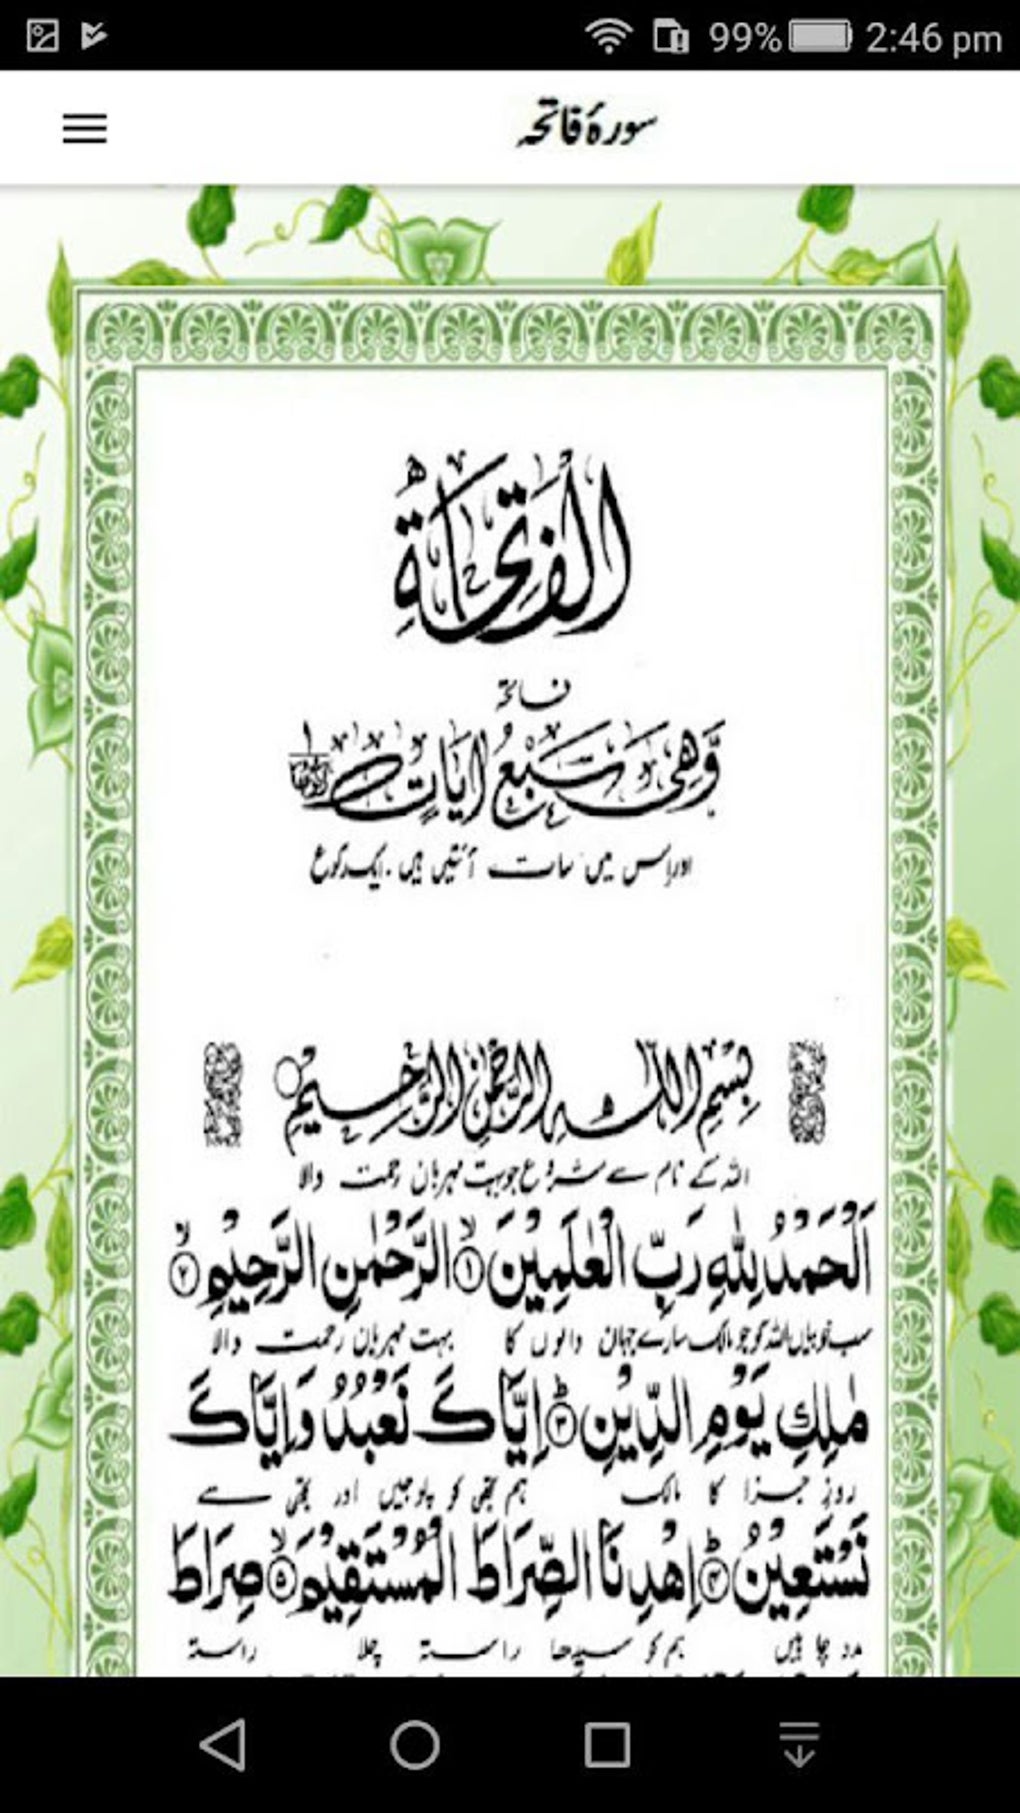 99% 2:46 pm
سورۂ فاتحہ
الْفَاتِحَةُ
فاتحہ
وَّهِیَ سَبْعُ اٰیَاتٍ
اور اس میں سات آئتیں ہیں۔ ایک رکوع
بِسْمِ اللّٰهِ الرَّحْمٰنِ الرَّحِیْمِ
اللہ کے نام سے شروع جو بہت مہربان رحمت والا
اَلْحَمْدُ لِلّٰهِ رَبِّ الْعٰلَمِیْنَ ۙ﴿۱﴾ الرَّحْمٰنِ الرَّحِیْمِ ۙ﴿۲﴾
سب خوبیاں اللہ کو جو مالک سارے جہان والوں کا بہت مہربان رحمت والا
مٰلِكِ یَوْمِ الدِّیْنِ ؕ﴿۳﴾ اِیَّاكَ نَعْبُدُ وَاِیَّاكَ
روزِ جزا کا مالک ہم تجھی کو پوجیں اور تجھی سے
نَسْتَعِیْنُ ؕ﴿۴﴾ اِهْدِنَا الصِّرَاطَ الْمُسْتَقِیْمَ ۙ﴿۵﴾ صِرَاطَ
مدد چاہیں ہم کو سیدھا راستہ چلا راستہ